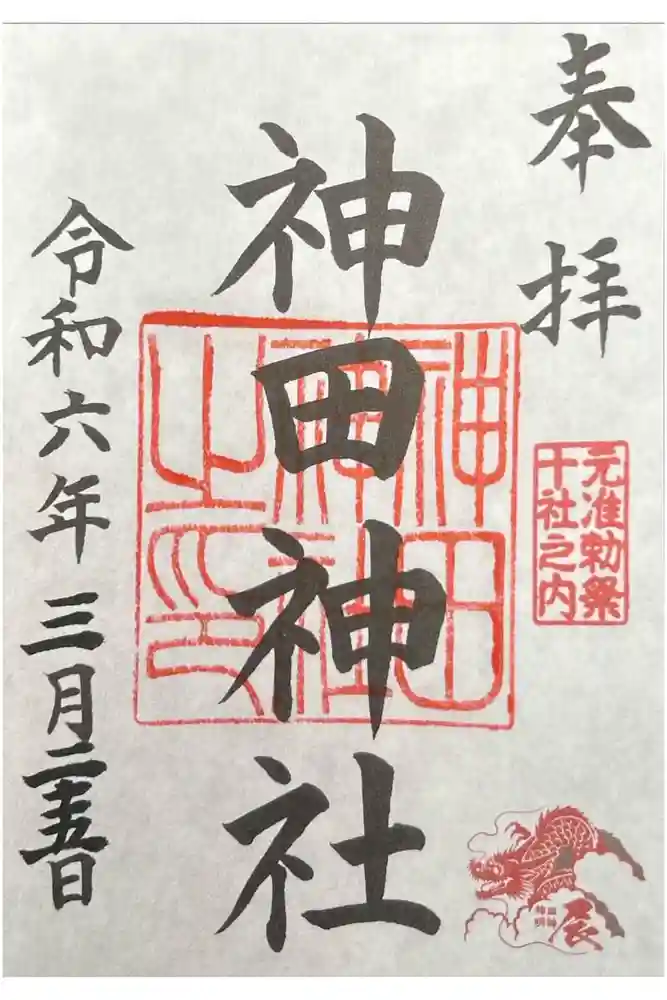 奉拝
元准勅祭
十社之内
辰
神田神社
神田
神社
之印
令和六年三月二十五日